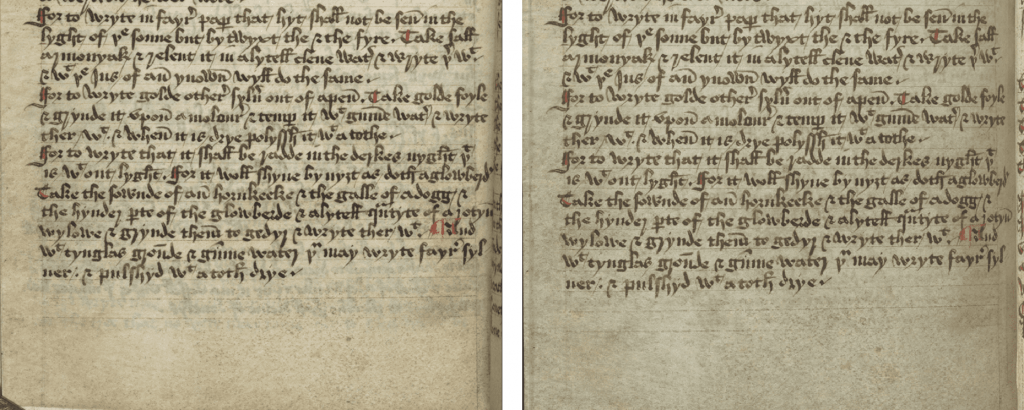 For to wryte in fayr papr that hyt shall not be sen in the
lyght of þe sonne but by twyxt the & the fyre. Take sall
armonyak & relent it in a lytell clene watr & wryte þr wt.
& wt þe Jus of an ynown wyll do the same.
For to wryte golde other sylur out of a pen. Take golde foyle
& grynde it vpon a molour & tempr it wt gume watr & wryte
ther wt. & when it is drye polyssh it wt a tothe.
For to wryte that it shall be radde in the derkes nyght þt
is wt out lyght. For it woll shyne by nyzt as doth a glowberd
Take the of an & the galle of a dogg &
the hynder pte of the glowberde & a lytell qntyte of a rotyn
wylowe & grynde them to gedyr & wryte ther wt. And
wt tynglas gronde & gume water þu may wryte fayr syl
uer. & pulshyd wt a toth drye.
For to wryte in fayr papr that hyt shall not be sen in the
lyght of þe sonne but by twyxt the & the fyre. Take sall
armonyak & relent it in a lytell clene watr & wryte þr wt.
& wt þe Jus of an ynown wyll do the same.
For to wryte golde other sylur out of a pen. Take golde foyle
& grynde it vpon a molour & tempr it wt gume watr & wryte
ther wt. & when it is drye polyssh it wt a tothe.
For to wryte that it shall be radde in the derkes nyght þt
is wt out lyght. For it woll shyne by nyzt as doth a glowberd
Take the of an & the galle of a dogg &
the hynder pte of the glowberde & a lytell qntyte of a rotyn
wylowe & grynde them to gedyr & wryte ther wt. And
wt tynglas gronde & gume water þu may wryte fayr syl
uer. & pulshyd wt a toth drye.